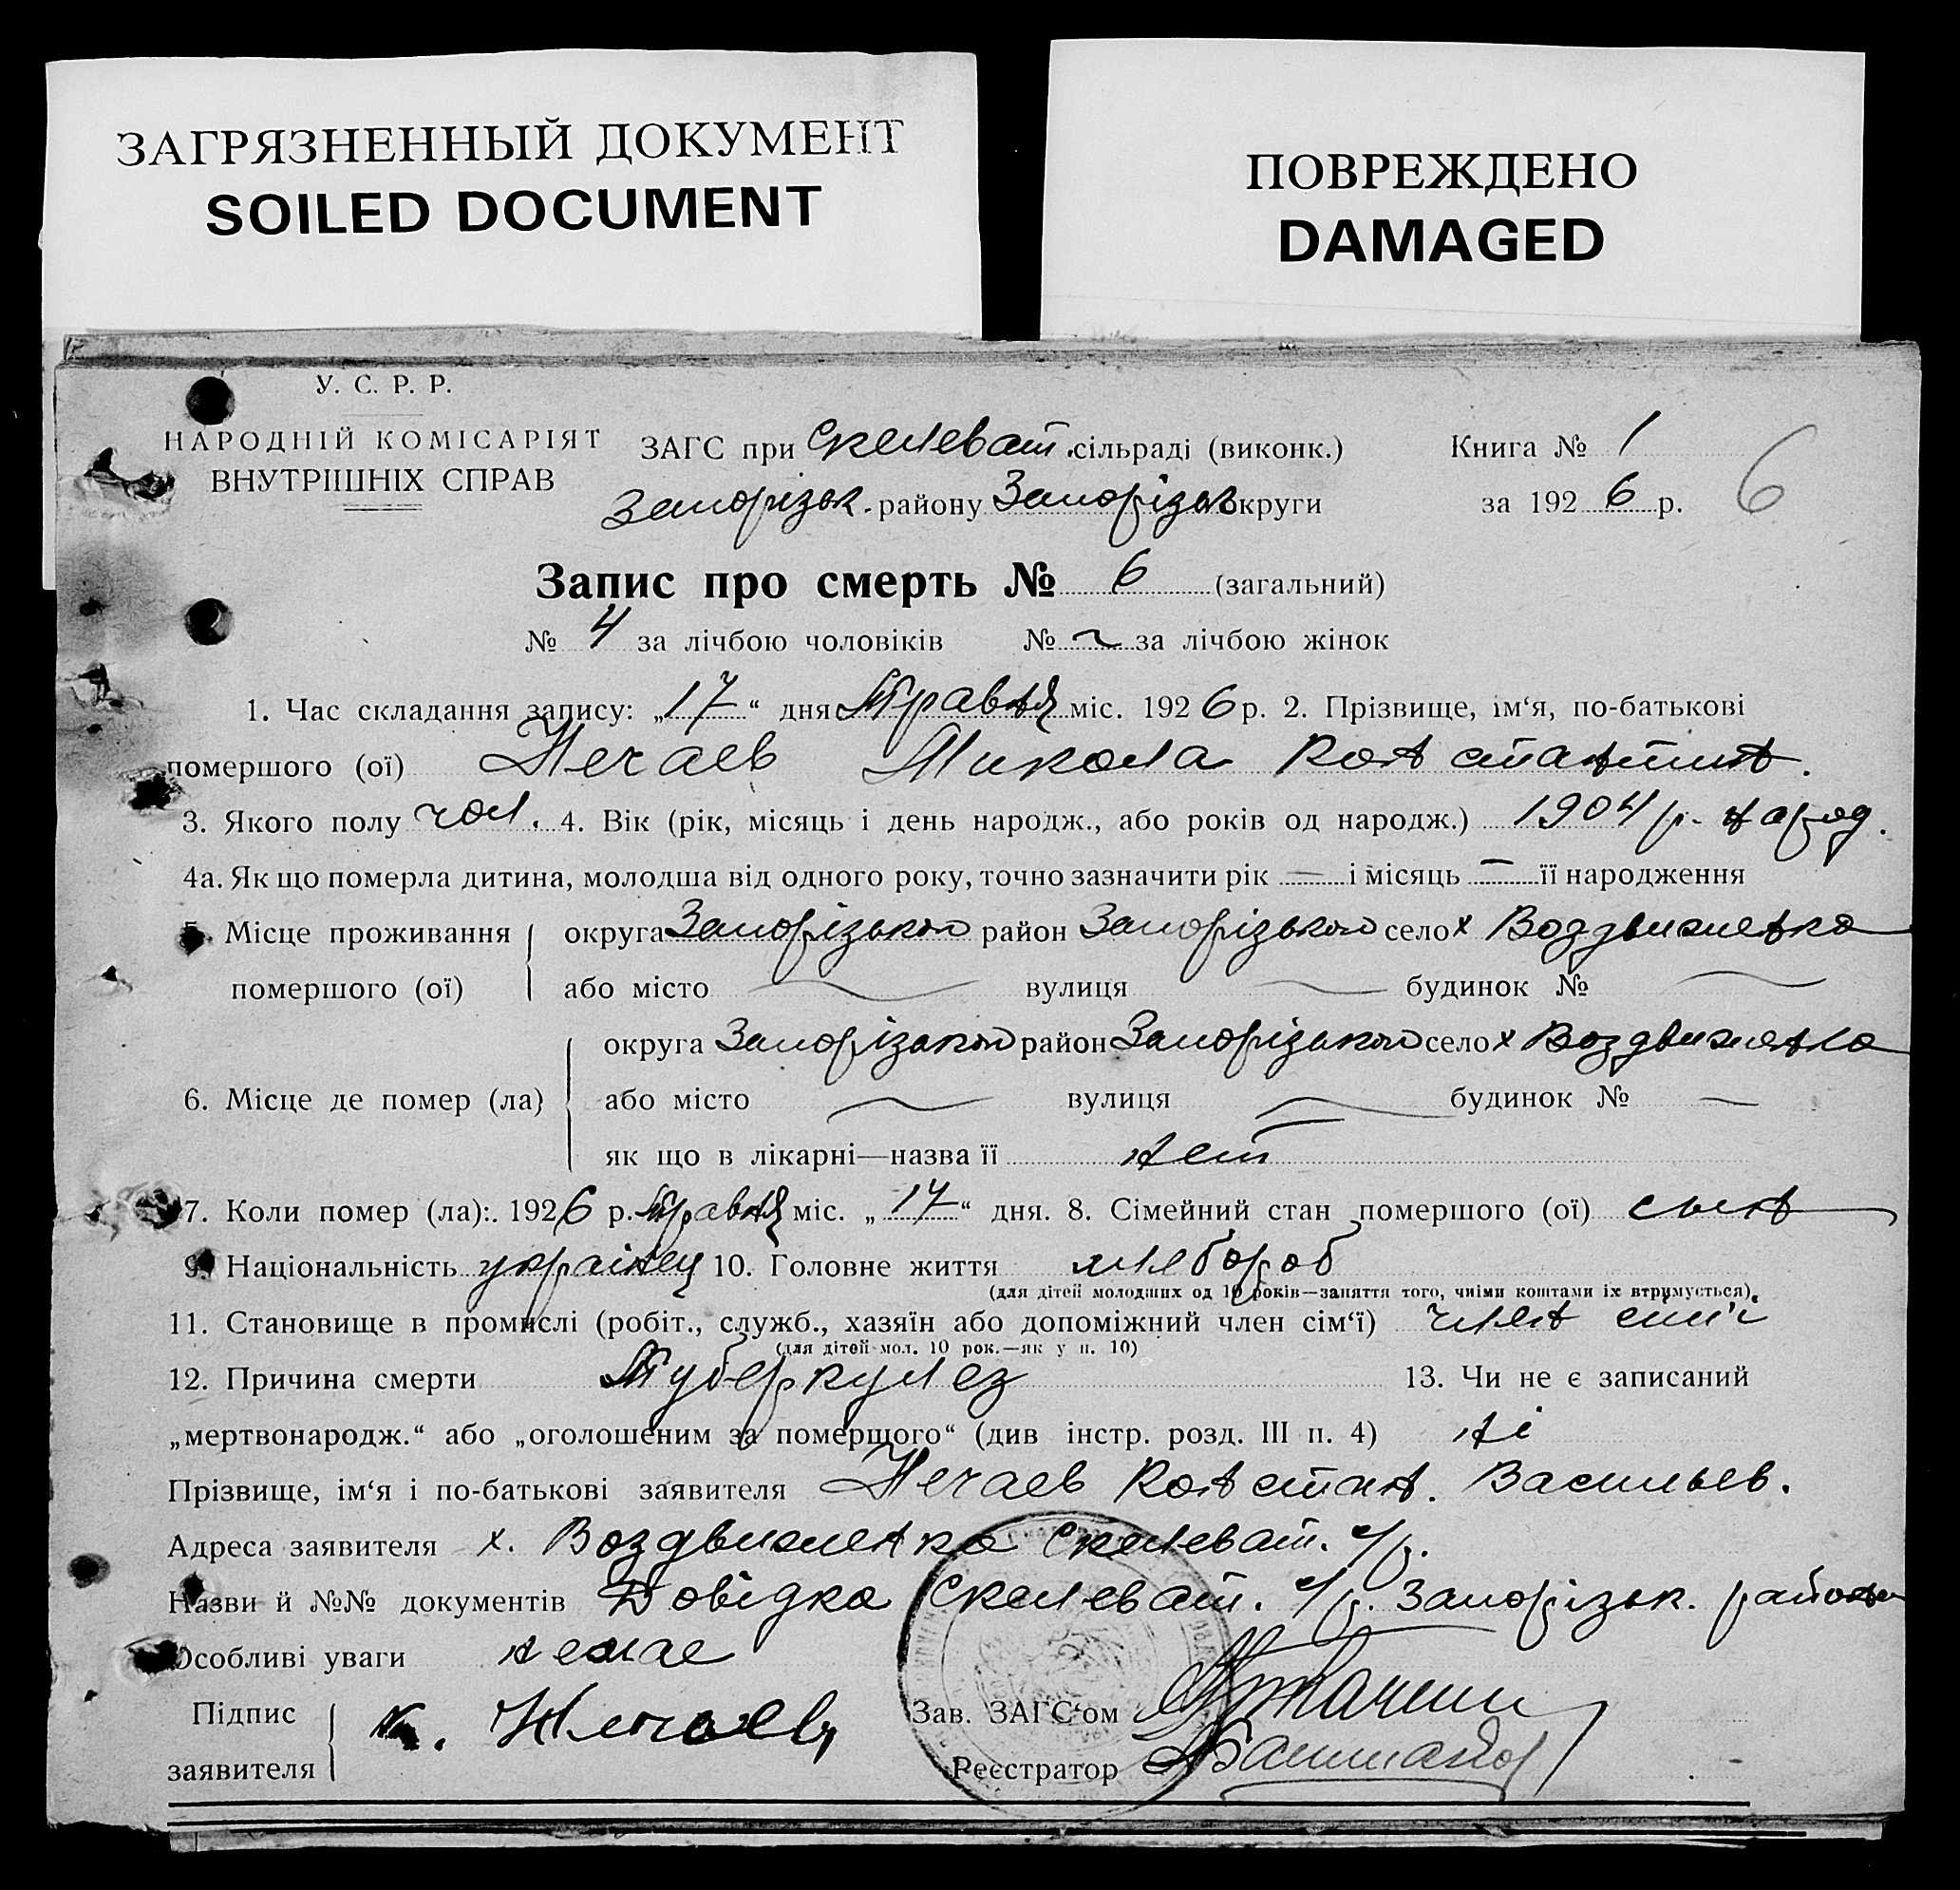 ЗАГРЯЗНЕННЫЙ ДОКУМЕНТ
SOILED DOCUMENT
ПОВРЕЖДЕНО
DAMAGED
У. С. Р. Р.
НАРОДНІЙ КОМІСАРІЯТ
ВНУТРІШНІХ СПРАВ
ЗАГС при Скелеват. сільраді (виконк.)
Запоріжськ. району Запоріжськ округи
Книга № 1
за 1926 р.
6
Запис про смерть № 6 (загальний)
№ 4 за лічбою чоловіків № ~ за лічбою жінок
1. Час складання запису: „17“ дня Травня міс. 1926 р. 2. Прізвище, ім‘я, по-батькові
помершого (ої) Нечаев Микола Константин.
3. Якого полу чол. 4. Вік (рік, місяць і день народж., або років од народж.) 1904 р. народ.
4а. Як що померла дитина, молодша від одного року, точно зазначити рік — і місяць — її народження
5. Місце проживання помершого (ої) округа Запорізькою район Запорізькою село х Воздвиженка
або місто — вулиця — будинок № —
6. Місце де помер (ла) округа Запорізькою район Запорізькою село х Воздвиженка
або місто — вулиця — будинок № —
як що в лікарні—назва її нет
7. Коли помер (ла):. 1926 р. Травня міс. „17“ дня. 8. Сімейний стан помершого (ої) сын
9. Національність українец 10. Головне життя хлебороб
(для дітей молодших од 10 років—заняття того, чиїми коштами їх втримується).
11. Становище в промислі (робіт., служб., хазяїн або допоміжний член сім‘ї) член сім'ї
(для дітей мол. 10 рок.—як у п. 10)
12. Причина смерти Туберкулез 13. Чи не є записаний
„мертвонародж.“ або „оголошеним за помершого“ (див інстр. розд. III п. 4) ні
Прізвище, ім‘я і по-батькові заявителя Нечаев Констант. Васильев.
Адреса заявителя х. Воздвиженка Скелеват. с/р.
Назви й №№ документів Довідка Скелеват. с/р. Запорізьк. району
Особливі уваги немае
Підпис заявителя К. Нечаев
Зав. ЗАГС‘ом
Реєстратор